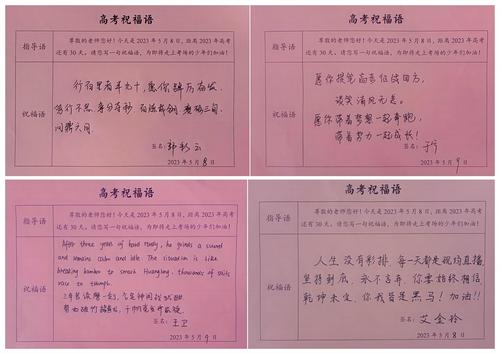 高考祝福语
指导语
尊敬的老师您好！今天是2023年5月8日，距离2023年高考
还有30天。请您写一句祝福语，为即将走上考场的少年们加油！
祝福语
行百里者半九十，愿你
笃行不怠
问鼎
签名：
2023年5月8日
高考祝福语
指导语
尊敬的老师您好！今天是2023年5月8日，距离2023年高考
还有30天。请您写一句祝福语，为即将走上考场的少年们加油！
祝福语
愿你
谈笑清风
愿你带着梦想一起奔跑，
带着努力一起成长！
签名：于
2023年5月9日
高考祝福语
指导语
尊敬的老师您好！今天是2023年5月8日，距离2023年高考
还有30天。请您写一句祝福语，为即将走上考场的少年们加油！
祝福语
After three years of hard study, he grinds a sword
and remains calm and idle. The situation is like
breaking bamboo to smash Huanglong, thousands of sails
race to triumph.
三年苦读磨一剑，气定神闲
势如破竹捣黄龙，千帆竞
签名：王卫
2023年5月9日
高考祝福语
指导语
尊敬的老师您好！今天是2023年5月8日，距离2023年高考
还有30天。请您写一句祝福语，为即将走上考场的少年们加油！
祝福语
人生没有彩排，每一天都是现场直播
坚持到底，永不言弃，你要始终相信
乾坤未定，你我皆是黑马！加油！！
签名：艾金玲
2023年5月8日